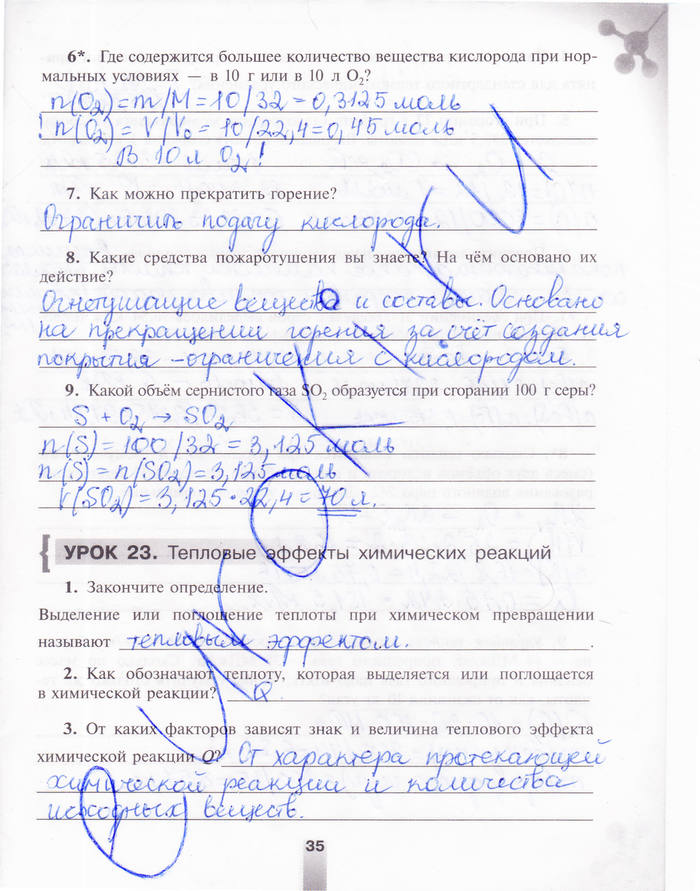 6*. Где содержится большее количество вещества кислорода при нор-
мальных условиях — в 10 г или в 10 л O₂?
n(O₂) = m/M = 10/32 = 0,3125 моль
! n(O₂) = V/V₀ = 10/22,4 = 0,45 моль
В 10 л O₂!
7. Как можно прекратить горение?
Ограничить подачу кислорода.
8. Какие средства пожаротушения вы знаете? На чём основано их
действие?
Огнетушащие вещества и составы. Основано
на прекращении горения за счёт создания
покрытия - ограничения с кислородом.
9. Какой объём сернистого газа SO₂ образуется при сгорании 100 г серы?
S + O₂ → SO₂
n(S) = 100/32 = 3,125 моль
n(S) = n(SO₂) = 3,125 моль
V(SO₂) = 3,125 · 22,4 = 70 л.
УРОК 23. Тепловые эффекты химических реакций
1. Закончите определение.
Выделение или поглощение теплоты при химическом превращении
называют тепловым эффектом.
2. Как обозначают теплоту, которая выделяется или поглощается
в химической реакции? Q
3. От каких факторов зависят знак и величина теплового эффекта
химической реакции Q? От характера протекающей
химической реакции и количества
исходных веществ.
35